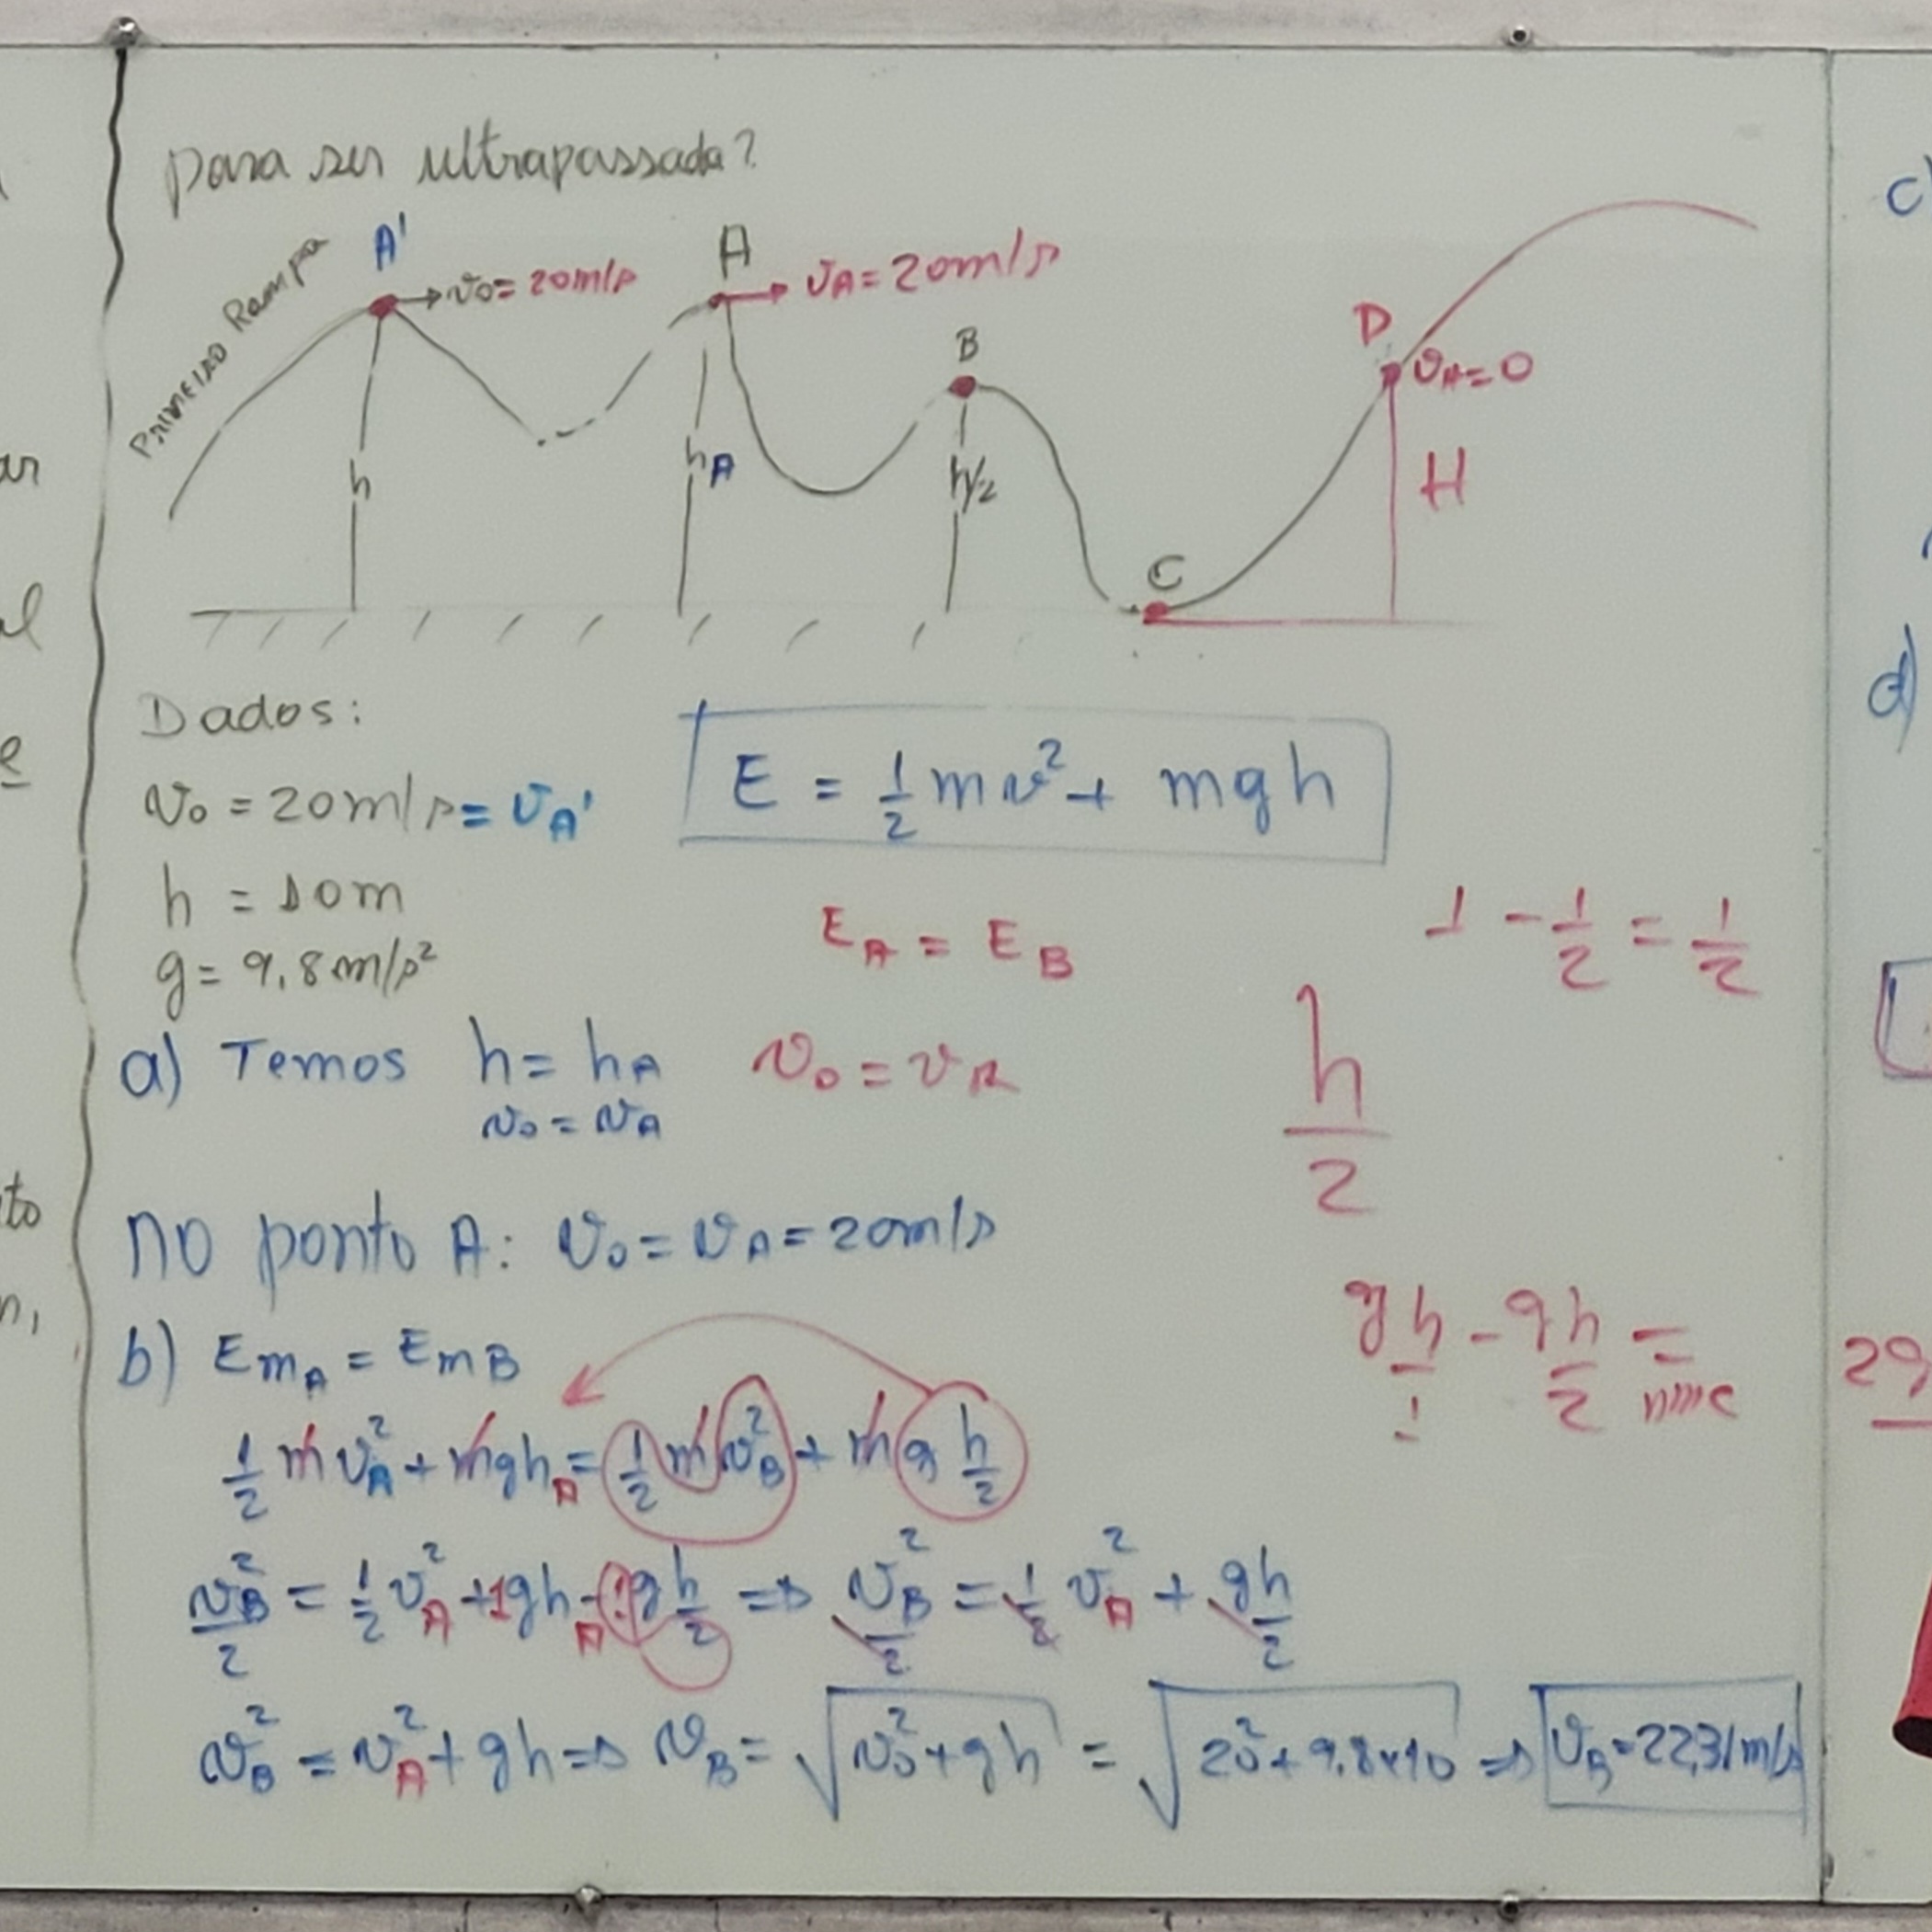 para ser ultrapassada?
Primeiro Rampa
A'
v₀= 20m/s
A
v_A= 20m/s
B
D
v_A=0
h
h_A
h/2
H
C
Dados:
v₀ = 20m/s = v_A'
E = 1/2 mv² + mgh
h = 10m
g = 9,8m/s²
E_A = E_B
1 - 1/2 = 1/2
a) Temos h = h_A v₀ = v_A
v₀ = v_A
h/2
no ponto A: v₀ = v_A = 20m/s
gh/1 - gh/2 = mmc
b) Em_A = Em_B
1/2 mv_A² + mgh_A = 1/2 mv_B² + mg h/2
v_B²/2 = 1/2 v_A² + 1gh_A - 1g h/2 => v_B²/2 = 1/2 v_A² + gh/2
v_B² = v_A² + gh => v_B = √(v₀² + gh) = √(20² + 9,8x10) => v_B = 22,31m/s
c)
d)
ar
al
e
to
n,